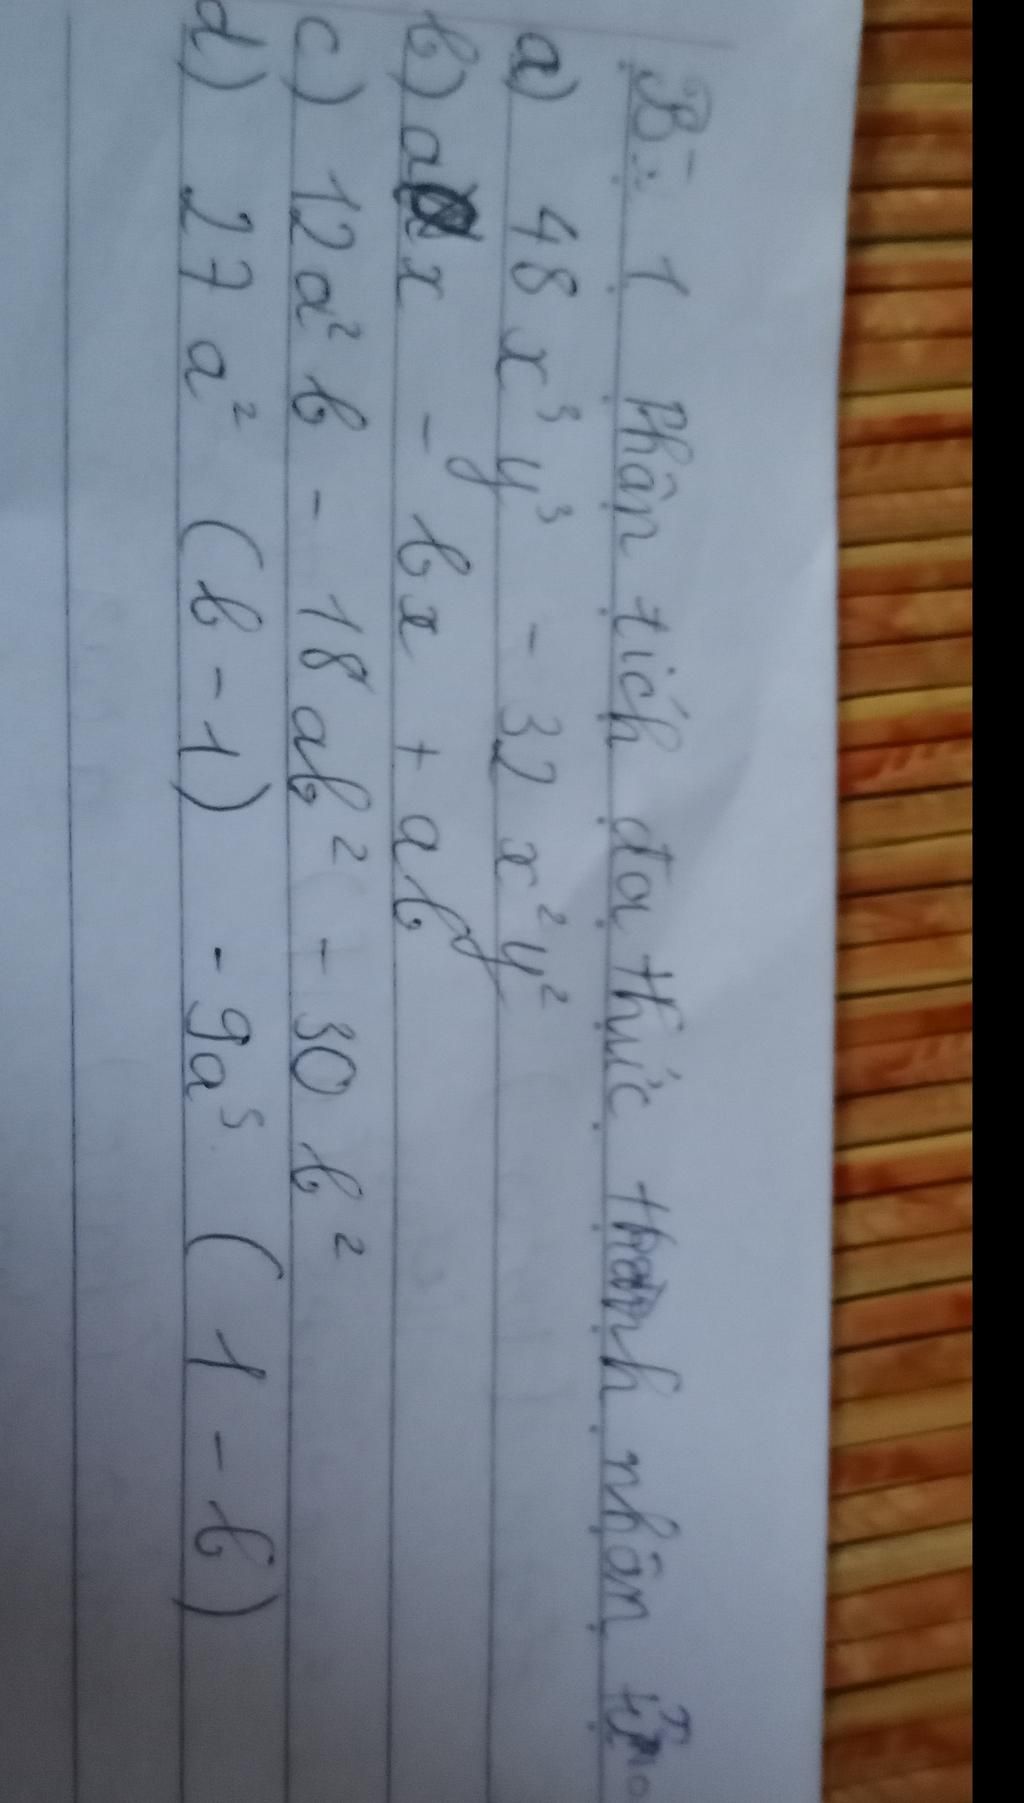 B: 1 Phân tích đa thức thành nhân tử
a) 48x³y³ - 32x²y²
b) ax - bx + ab
c) 12a²b - 18ab² - 30b²
d) 27a² (b - 1) - 9a³ (1 - b)